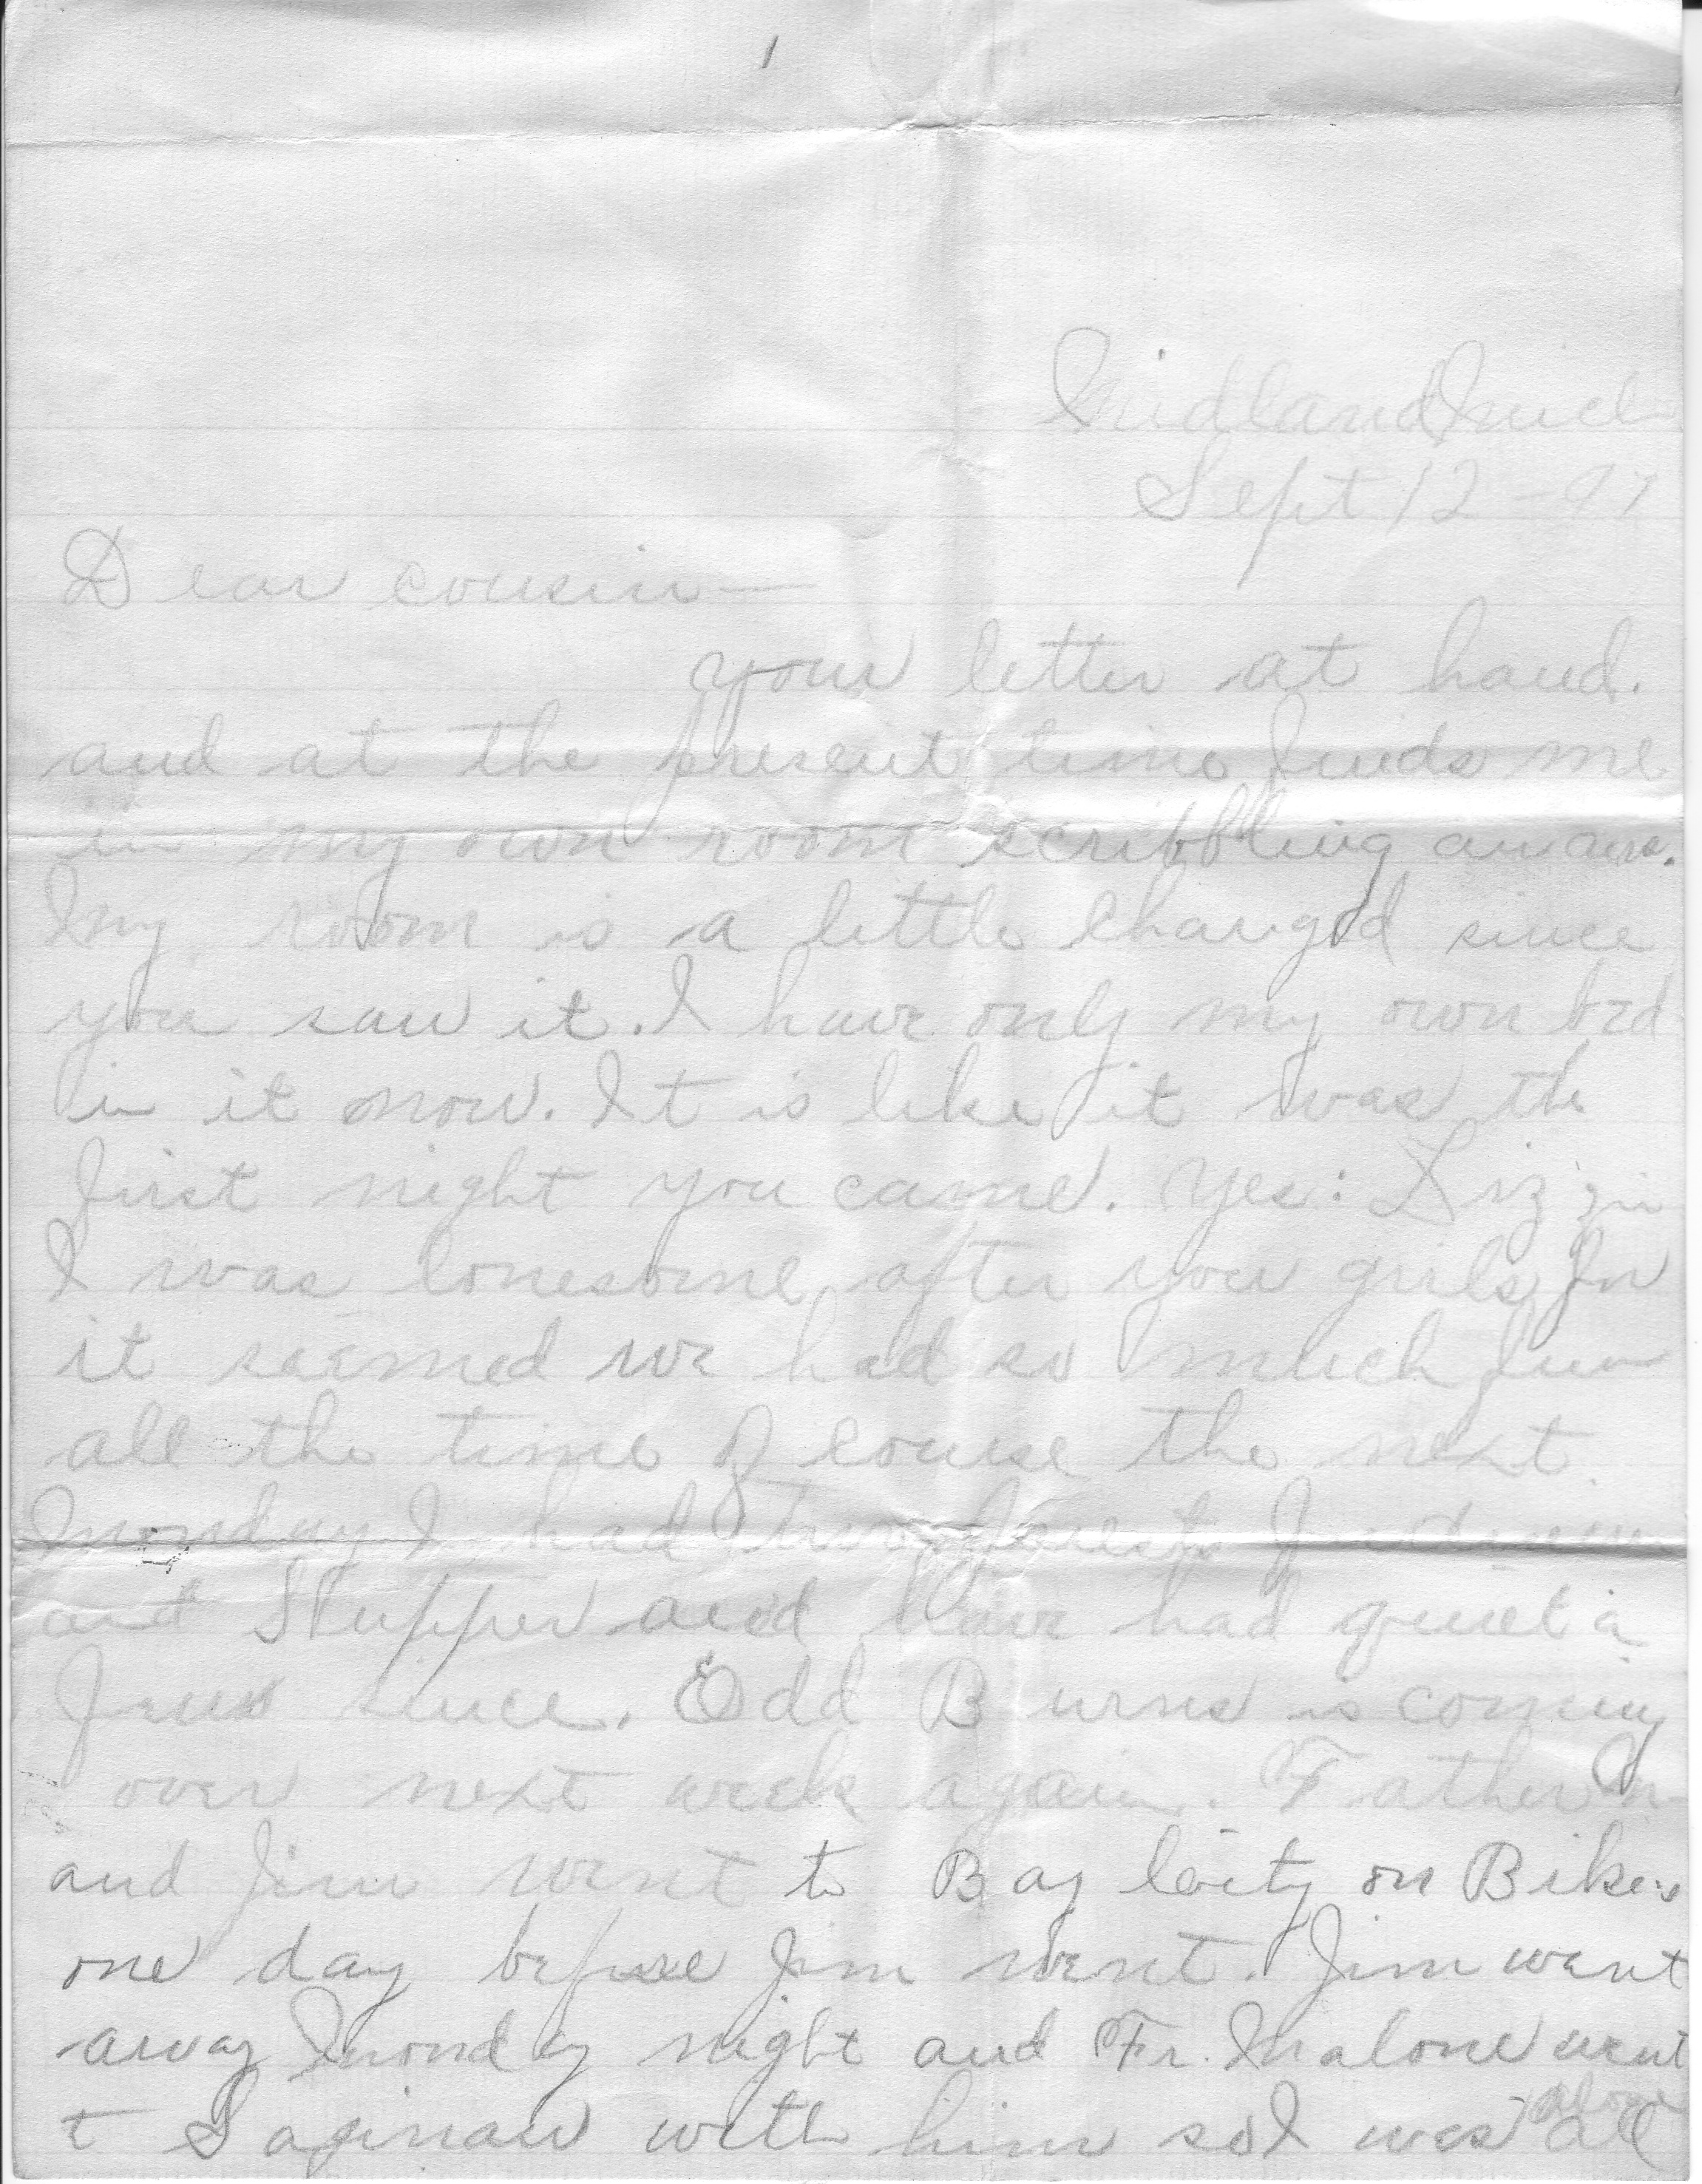 1
Midland Mich
Sept 12 - 97
Dear cousin —
your letter at hand.
and at the present time finds me
in my own room scribbling an ans.
My room is a little changed since
you saw it. I have only my own bed
in it now. It is like it was the
first night you came. Yes: Lizzie
I was lonesome after you girls for
it seemed we had so much fun
all the time of course the next
Monday I had two guests for
and Supper and have had quiet a
few since. Edd Burns is coming
over next week again. Father
and Jim went to Bay City on Bikes
one day before Jim went. Jim went
away Monday night and Fr. Malone went
t Saginaw with him so I was all
alone